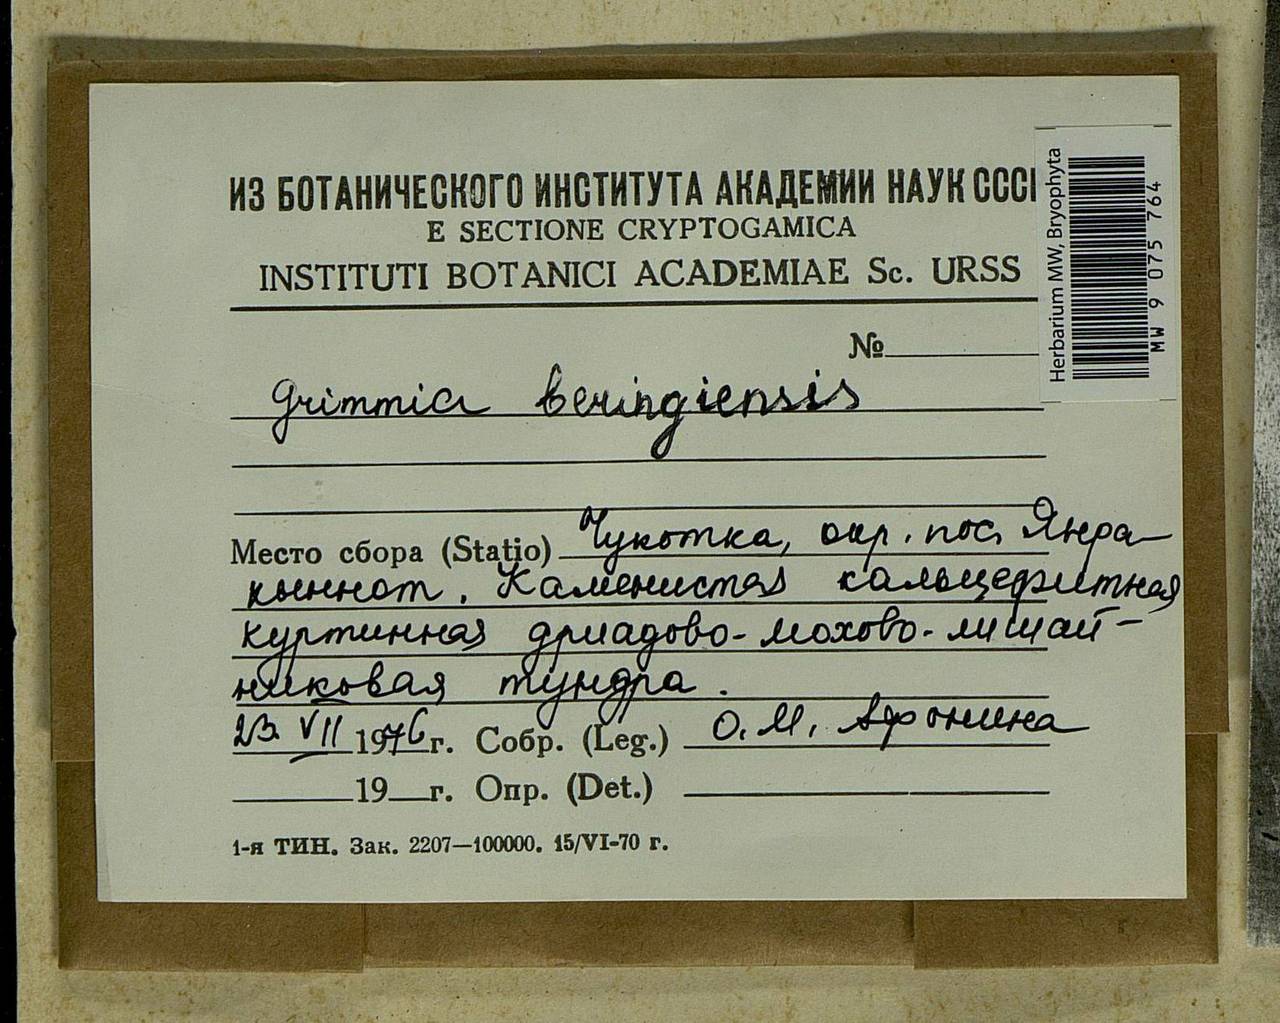 ИЗ БОТАНИЧЕСКОГО ИНСТИТУТА АКАДЕМИИ НАУК СССР
E SECTIONE CRYPTOGAMICA
INSTITUTI BOTANICI ACADEMIAE Sc. URSS
№
Grimmia beringiensis
Место сбора (Statio) Чукотка, окр. пос. Янра-
кыннот. Каменистая кальцефитная
куртинная дриадово-мохово-лишай-
никовая тундра.
23 VII 1976 г. Собр. (Leg.) О. М. Афонина
19 г. Опр. (Det.)
1-я ТИН. Зак. 2207—100000. 15/VI-70 г.
Herbarium MW, Bryophyta
MW 9 075 764